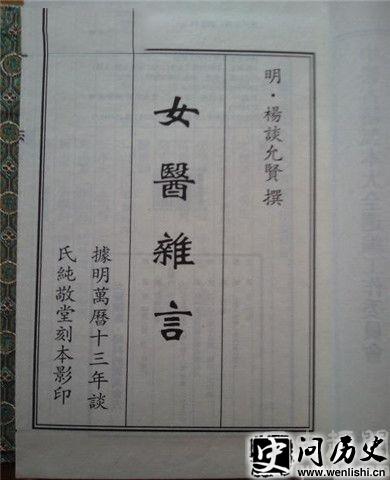 明·楊談允賢撰
女醫雜言
據明萬曆十三年談
氏純敬堂刻本影印
问历史
www.wenlishi.cn